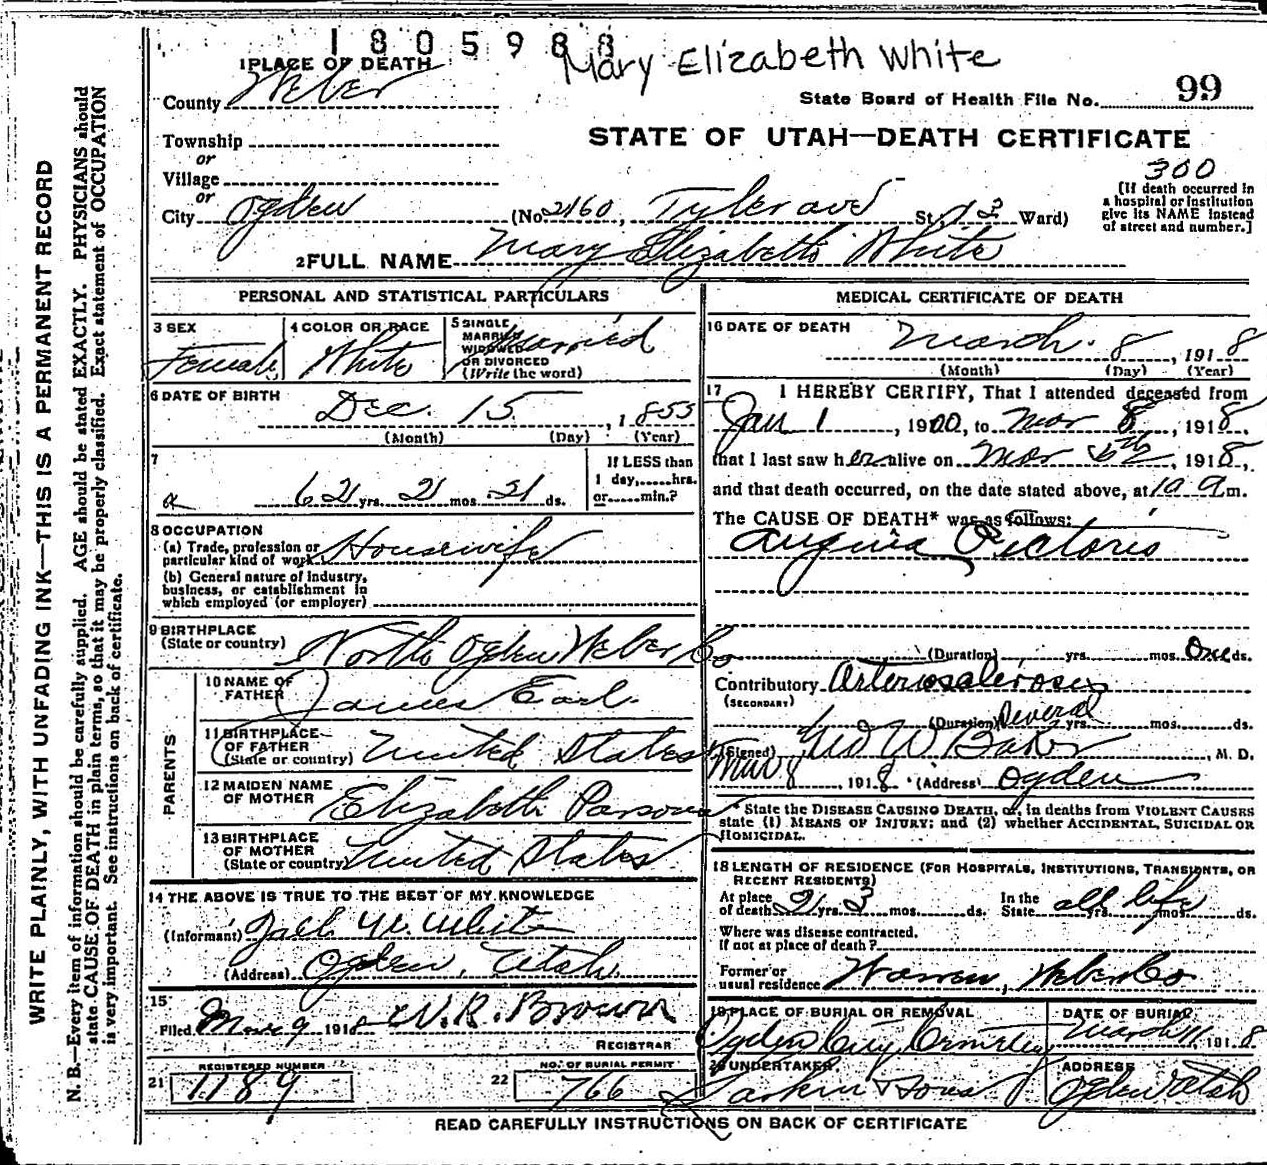 1 8 0 5 9 8 8
Mary Elizabeth White
1 PLACE OF DEATH
County Weber
State Board of Health File No. 99
Township
or
Village
or
STATE OF UTAH—DEATH CERTIFICATE
300
[If death occurred in
a hospital or institution
give its NAME instead
of street and number.]
City Ogden (No. 2160, Tyler ave St., Ward)
2 FULL NAME Mary Elizabeth White
PERSONAL AND STATISTICAL PARTICULARS
3 SEX
Female
4 COLOR OR RACE
White
5 SINGLE
MARRIED
WIDOWED
OR DIVORCED
(Write the word)
Married
6 DATE OF BIRTH
Dec. 15, 1855
(Month) (Day) (Year)
7
62 yrs. 2 mos. 21 ds.
If LESS than
1 day, hrs.
or min.?
8 OCCUPATION
(a) Trade, profession or
particular kind of work Housewife
(b) General nature of industry,
business, or establishment in
which employed (or employer)
9 BIRTHPLACE
(State or country) North Ogden Weber Co
PARENTS
10 NAME OF
FATHER James Earl.
11 BIRTHPLACE
OF FATHER
(State or country) United States
12 MAIDEN NAME
OF MOTHER Elizabeth Parsons
13 BIRTHPLACE
OF MOTHER
(State or country) United States
14 THE ABOVE IS TRUE TO THE BEST OF MY KNOWLEDGE
(Informant) W. White
(Address) Ogden, Utah.
15
Filed Mar 9 1918 W. R. Brown
REGISTRAR
21 REGISTERED NUMBER
1189
22 NO. OF BURIAL PERMIT
766
MEDICAL CERTIFICATE OF DEATH
16 DATE OF DEATH
March. 8, 1918
(Month) (Day) (Year)
17 I HEREBY CERTIFY, That I attended deceased from
Jan 1, 1900, to Mar 8, 1918,
that I last saw her alive on Mar, 1918,
and that death occurred, on the date stated above, at 10 a m.
The CAUSE OF DEATH* was as follows:
Angina Pectoris
(Duration) yrs. mos. One ds.
Contributory Arteriosclerosis
(SECONDARY)
(Duration) Several yrs. mos. ds.
(Signed) Geo W Baker, M. D.
Mar 8, 1918 (Address) Ogden
* State the DISEASE CAUSING DEATH, or, in deaths from VIOLENT CAUSES
state (1) MEANS OF INJURY; and (2) whether ACCIDENTAL, SUICIDAL OR
HOMICIDAL.
18 LENGTH OF RESIDENCE (FOR HOSPITALS, INSTITUTIONS, TRANSIENTS, OR
RECENT RESIDENTS)
At place
of death 21 yrs. 3 mos. ds. In the
State all life yrs. mos. ds.
Where was disease contracted,
if not at place of death?
Former or
usual residence Warren, Weber Co
19 PLACE OF BURIAL OR REMOVAL
Ogden City Cemetery
DATE OF BURIAL
March 11, 1918
20 UNDERTAKER
Larkin & Sons
ADDRESS
Ogden Utah
READ CAREFULLY INSTRUCTIONS ON BACK OF CERTIFICATE
WRITE PLAINLY, WITH UNFADING INK—THIS IS A PERMANENT RECORD
N. B.—Every item of information should be carefully supplied. AGE should be stated EXACTLY. PHYSICIANS should
state CAUSE OF DEATH in plain terms, so that it may be properly classified. Exact statement of OCCUPATION
is very important. See instructions on back of certificate.